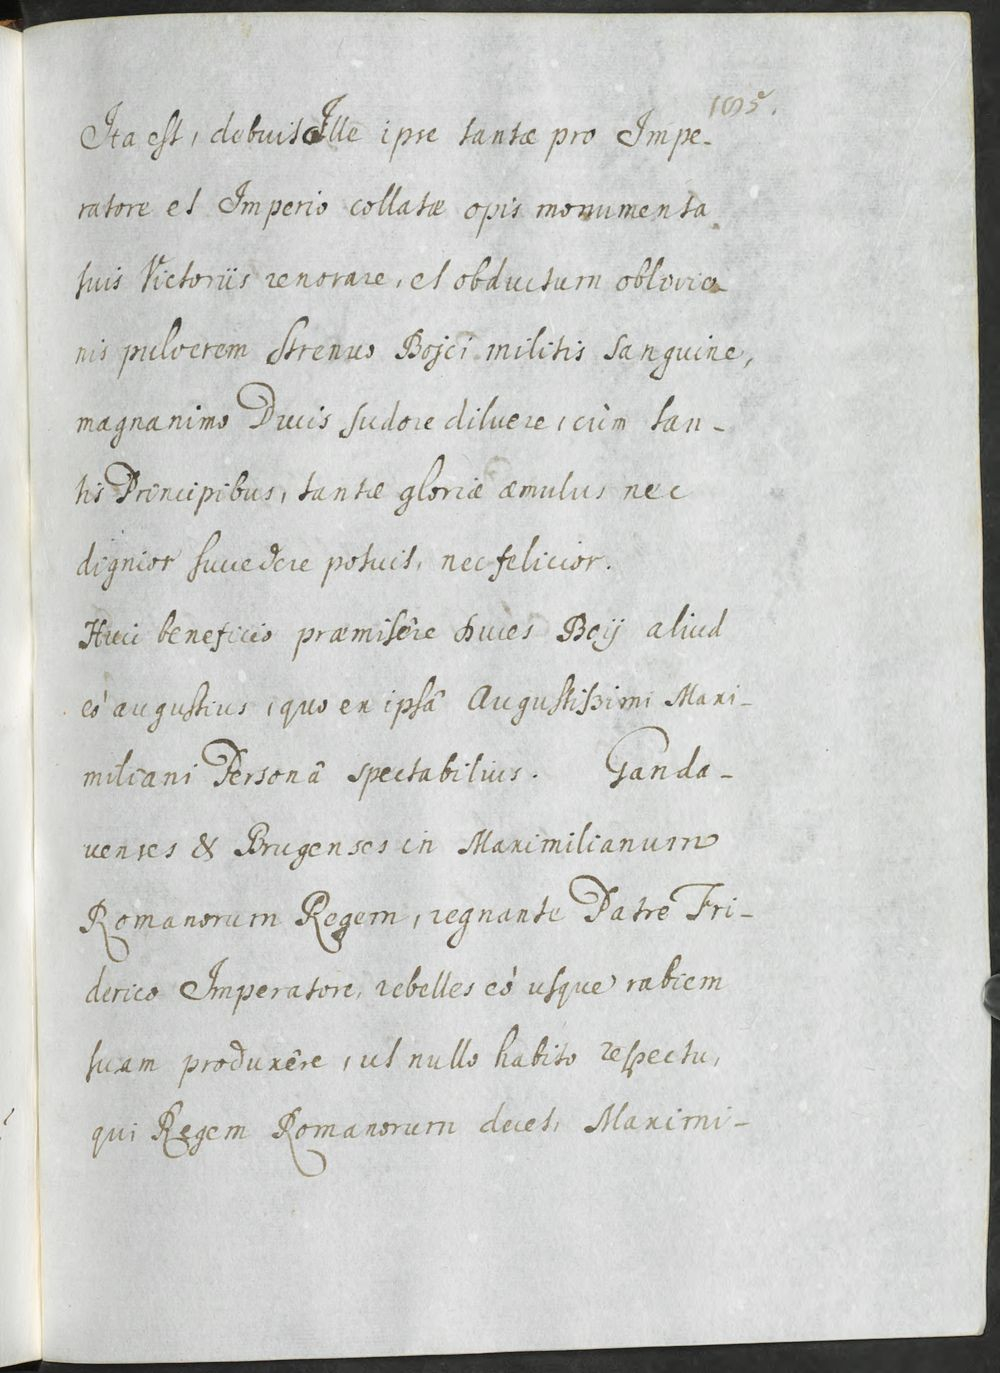 195.
Ita est, debuit Ille ipse tantæ pro Impe-
ratore et Imperio collatæ opis monumenta
suis Victoriis renovare, et obductum oblivio
nis pulverem strenuo Bojci militis sanguine,
magnanimo Ducis sudore diluere, cùm tan-
tis Principibus, tantæ gloriæ æmulus nec
dignior succedere potuit, nec felicior.
Huic beneficio præmisêre Duces Boij aliud
eò augustius, quo ex ipsâ Augustissimi Maxi-
miliani Personâ spectabilius. Ganda-
venses & Brugenses in Maximilianum
Romanorum Regem, regnante Patre Fri-
derico Imperatore, rebelles eò usque rabiem
suam produxêre, ut nullo habito respectu,
qui Regem Romanorum decet, Maximi-